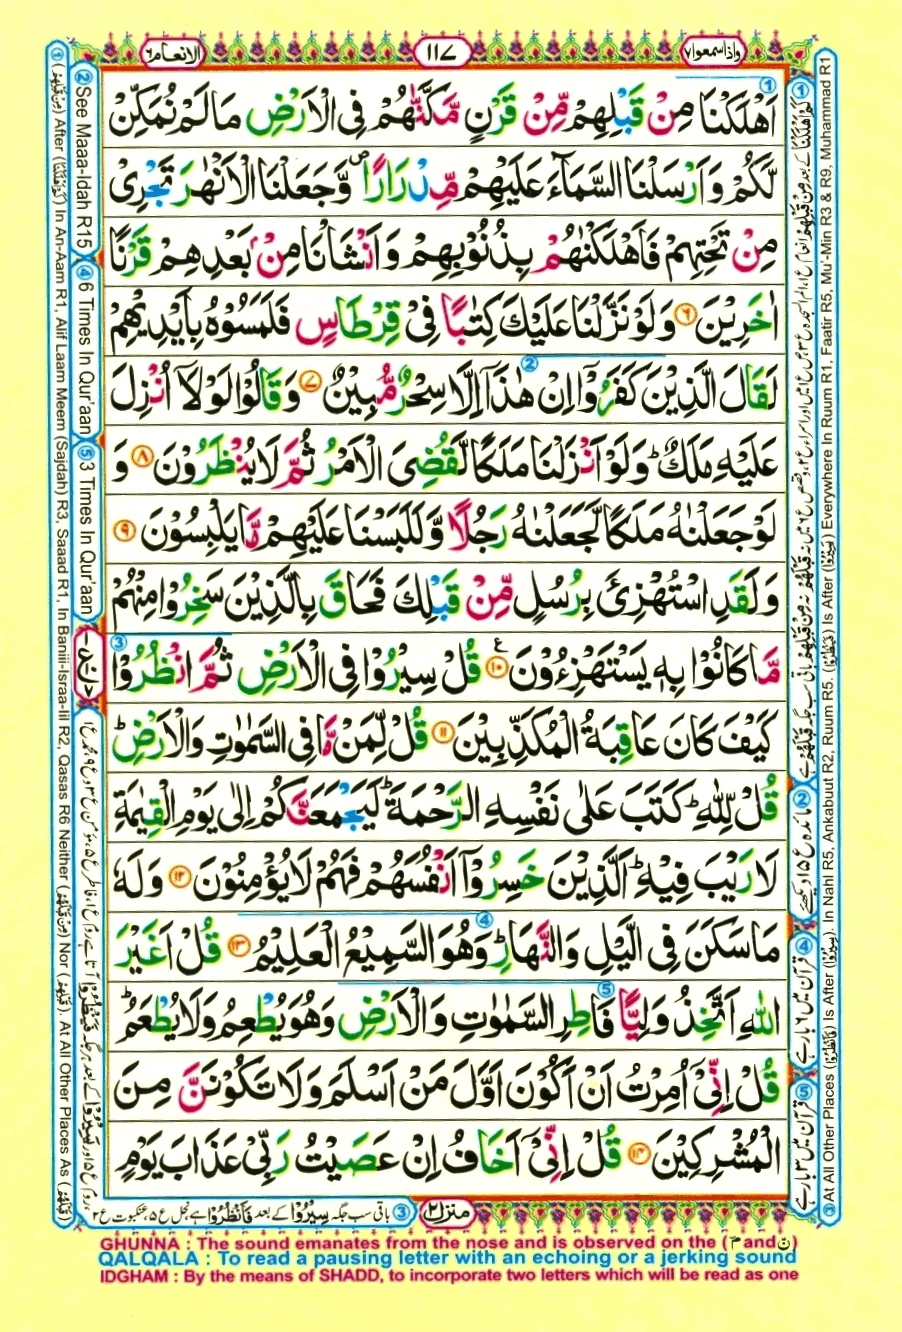 الانعام ٦
١١٧
واذا سمعوا ٧
اَهۡلَكۡنَا مِنۡ قَبۡلِهِمۡ مِّنۡ قَرۡنٍ مَّكَّنّٰهُمۡ فِى الۡاَرۡضِ مَا لَمۡ نُمَكِّنۡ
لَّكُمۡ وَاَرۡسَلۡنَا السَّمَآءَ عَلَيۡهِمۡ مِّدۡرَارًا ص وَّجَعَلۡنَا الۡاَنۡهٰرَ تَجۡرِىۡ
مِنۡ تَحۡتِهِمۡ فَاَهۡلَكۡنٰهُمۡ بِذُنُوۡبِهِمۡ وَاَنۡشَاۡنَا مِنۡۢ بَعۡدِهِمۡ قَرۡنًا
اٰخَرِيۡنَ ٦ وَلَوۡ نَزَّلۡنَا عَلَيۡكَ كِتٰبًا فِىۡ قِرۡطَاسٍ فَلَمَسُوۡهُ بِاَيۡدِيۡهِمۡ
لَقَالَ الَّذِيۡنَ كَفَرُوۡۤا اِنۡ هٰذَاۤ اِلَّا سِحۡرٌ مُّبِيۡنٌ ٧ وَقَالُوۡا لَوۡلَاۤ اُنۡزِلَ
عَلَيۡهِ مَلَكٌ ؕ وَلَوۡ اَنۡزَلۡنَا مَلَكًا لَّقُضِىَ الۡاَمۡرُ ثُمَّ لَا يُنۡظَرُوۡنَ ٨ وَ
لَوۡ جَعَلۡنٰهُ مَلَكًا لَّجَعَلۡنٰهُ رَجُلًا وَّلَلَبَسۡنَا عَلَيۡهِمۡ مَّا يَلۡبِسُوۡنَ ٩
وَلَقَدِ اسۡتُهۡزِئَ بِرُسُلٍ مِّنۡ قَبۡلِكَ فَحَاقَ بِالَّذِيۡنَ سَخِرُوۡا مِنۡهُمۡ
مَّا كَانُوۡا بِهٖ يَسۡتَهۡزِءُوۡنَ ١٠ ع قُلۡ سِيۡرُوۡا فِى الۡاَرۡضِ ثُمَّ انْظُرُوۡا
كَيۡفَ كَانَ عَاقِبَةُ الۡمُكَذِّبِيۡنَ ١١ قُلۡ لِّمَنۡ مَّا فِى السَّمٰوٰتِ وَالۡاَرۡضِ ؕ
قُلۡ لِّلّٰهِ ؕ كَتَبَ عَلٰى نَفۡسِهِ الرَّحۡمَةَ ؕ لَيَجۡمَعَنَّكُمۡ اِلٰى يَوۡمِ الۡقِيٰمَةِ
لَا رَيۡبَ فِيۡهِ ؕ اَلَّذِيۡنَ خَسِرُوۡۤا اَنۡفُسَهُمۡ فَهُمۡ لَا يُؤۡمِنُوۡنَ ١٢ وَلَهٗ
مَا سَكَنَ فِى الَّيۡلِ وَالنَّهَارِ ؕ وَهُوَ السَّمِيۡعُ الۡعَلِيۡمُ ١٣ قُلۡ اَغَيۡرَ
اللّٰهِ اَتَّخِذُ وَلِيًّا فَاطِرِ السَّمٰوٰتِ وَالۡاَرۡضِ وَهُوَ يُطۡعِمُ وَلَا يُطۡعَمُ ؕ
قُلۡ اِنِّىۡۤ اُمِرۡتُ اَنۡ اَكُوۡنَ اَوَّلَ مَنۡ اَسۡلَمَ وَلَا تَكُوۡنَنَّ مِنَ
الۡمُشۡرِكِيۡنَ ١٤ قُلۡ اِنِّىۡۤ اَخَافُ اِنۡ عَصَيۡتُ رَبِّىۡ عَذَابَ يَوۡمٍ
② See Maaa-Idah R15 ④ 6 Times In Qur'aan ⑤ 3 Times In Qur'aan
① (مِنْ قَبْلِهِمْ) After (كَمْ اَهْلَكْنَا) In An-Aam R1, Alif Laam Meem (Sajdah) R3, Saaad R1, In Baniii-Israa-Iil R2, Qasas R6 Neither (مِنْ قَبْلِهِمْ) Nor (قَبْلِهِمْ). At All Other Places As (قَبْلَهُمْ)
③ At All Other Places (فَانْظُرُوْا) Is After (سِيْرُوْا). In Nahl R5, Ankabuut R2, Ruum R5. (فَيَنْظُرُوْا) Is After (يَسِيْرُوْا) Everywhere In Ruum R1, Faatir R5, Mu'-Min R3 & R9, Muhammad R1
منزل ٢
③ باقی سب جگہ سِيْرُوْا کے بعد فَانْظُرُوْا ہے نحل ع ۵، عنکبوت ع ۲
GHUNNA : The sound emanates from the nose and is observed on the (م and ن)
QALQALA : To read a pausing letter with an echoing or a jerking sound
IDGHAM : By the means of SHADD, to incorporate two letters which will be read as one